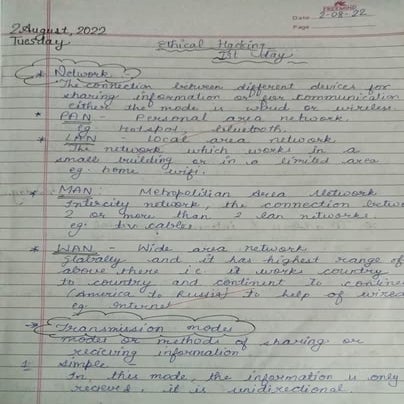 2 August, 2022
Tuesday
Date 2-08-22
Page
Ethical Hacking
Ist Day
* Network -
The connection between different devices for
sharing information or for communication
either the mode is wired or wireless.
* PAN - Personal area network.
eg hotspot, bluetooth.
* LAN - Local area network
The network which works in a
small building or in a limited area
eg. home wifi.
* MAN: Metropilitian Area Network
Intercity network, the connection betwe
2 or more than 2 lan networks.
eg: tv cables.
* WAN - Wide area network
Globally and it has highest range of
above there i.e. it works country
to country and continent to contine
(America to Russia) to help of
eg Internet
Transmission modes
modes or methods of sharing or
reciving information
1. Simple -
In, this mode, the information is only
recieved, it is unidirectional.